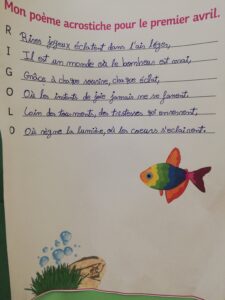 Mon poème acrostiche pour le premier avril.
R Rires joyeux éclatent dans l'air léger,
I Il est un monde où le bonheur est vrai,
G Grâce à chaque sourire, chaque éclat,
O Où les instants de joie jamais ne se fanent.
L Loin des tourments, des tristesses qui enserrent,
O Où règne la lumière, où les coeurs s'éclairent.